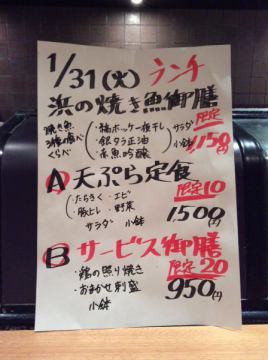 1/31(火) ランチ
浜の焼き魚御膳
限定
焼き魚
3種の食べ
くらべ
・縞ホッケ一夜干し
・銀ダラ正油
・赤魚吟醸
サラダ
小鉢
1,150円
A 天ぷら定食
限定10
・たらきく ・エビ
・豚ヒレ ・野菜
サラダ 小鉢
1,500円
B サービス御膳
限定20
・鶏の照り焼き
・おまかせ刺盛
小鉢
950円